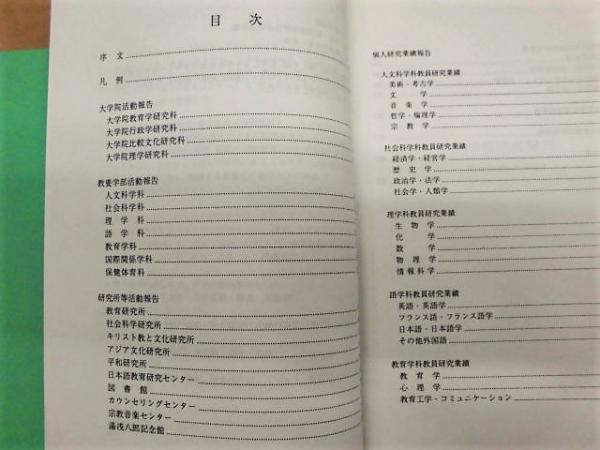 目 次
序 文
凡 例
大学院活動報告
大学院教育学研究科
大学院行政学研究科
大学院比較文化研究科
大学院理学研究科
教養学部活動報告
人文科学科
社会科学科
理 学 科
語 学 科
教育学科
国際関係学科
保健体育科
研究所等活動報告
教育研究所
社会科学研究所
キリスト教と文化研究所
アジア文化研究所
平和研究所
日本語教育研究センター
図 書 館
カウンセリングセンター
宗教音楽センター
湯浅八郎記念館
個人研究業績報告
人文科学科教員研究業績
美術・考古学
文 学
音 楽 学
哲学・倫理学
宗 教 学
社会科学科教員研究業績
経済学・経営学
歴 史 学
政治学・法学
社会学・人類学
理学科教員研究業績
生 物 学
化 学
数 学
物 理 学
情 報 科 学
語学科教員研究業績
英語・英語学
フランス語・フランス語学
日本語・日本語学
その他外国語
教育学科教員研究業績
教 育 学
心 理 学
教育工学・コミュニケーション